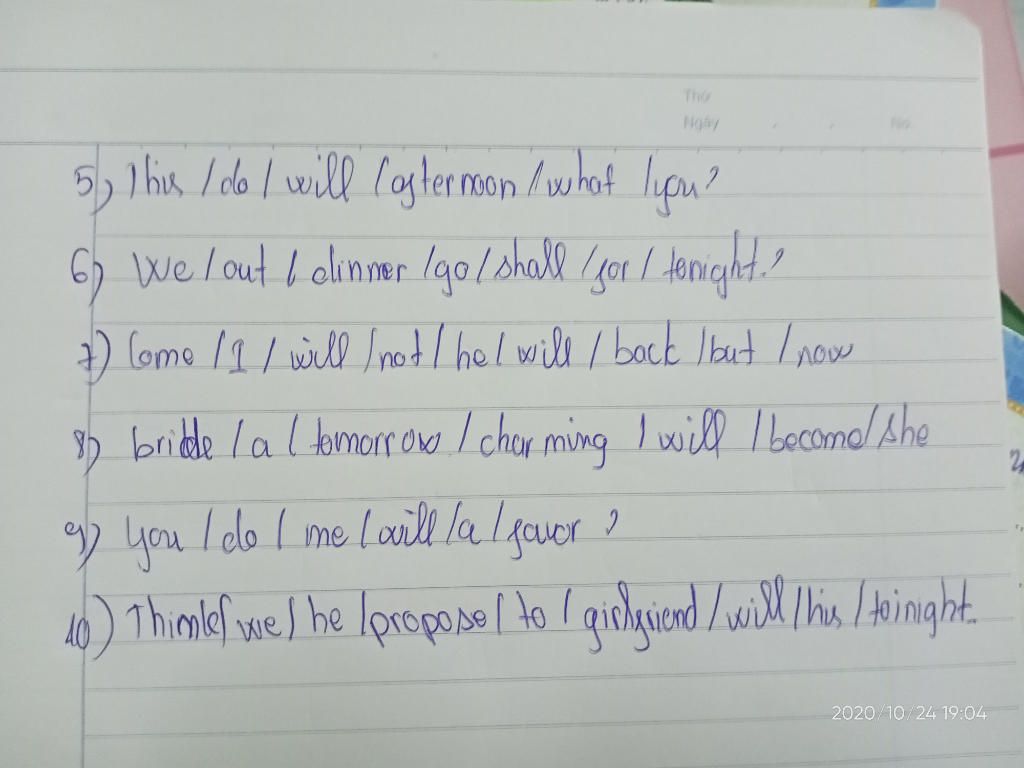 Thứ
Ngày . . No.
5) This / do / will / afternoon / what / you?
6) We / out / dinner / go / shall / for / tonight.?
7) Come / I / will / not / he / will / back / but / now
8) bride / a / tomorrow / charming / will / become / she
9) you / do / me / will / a / favor ?
10) Think / we / he / propose / to / girlfriend / will / his / toinight.
2020/10/24 19:04